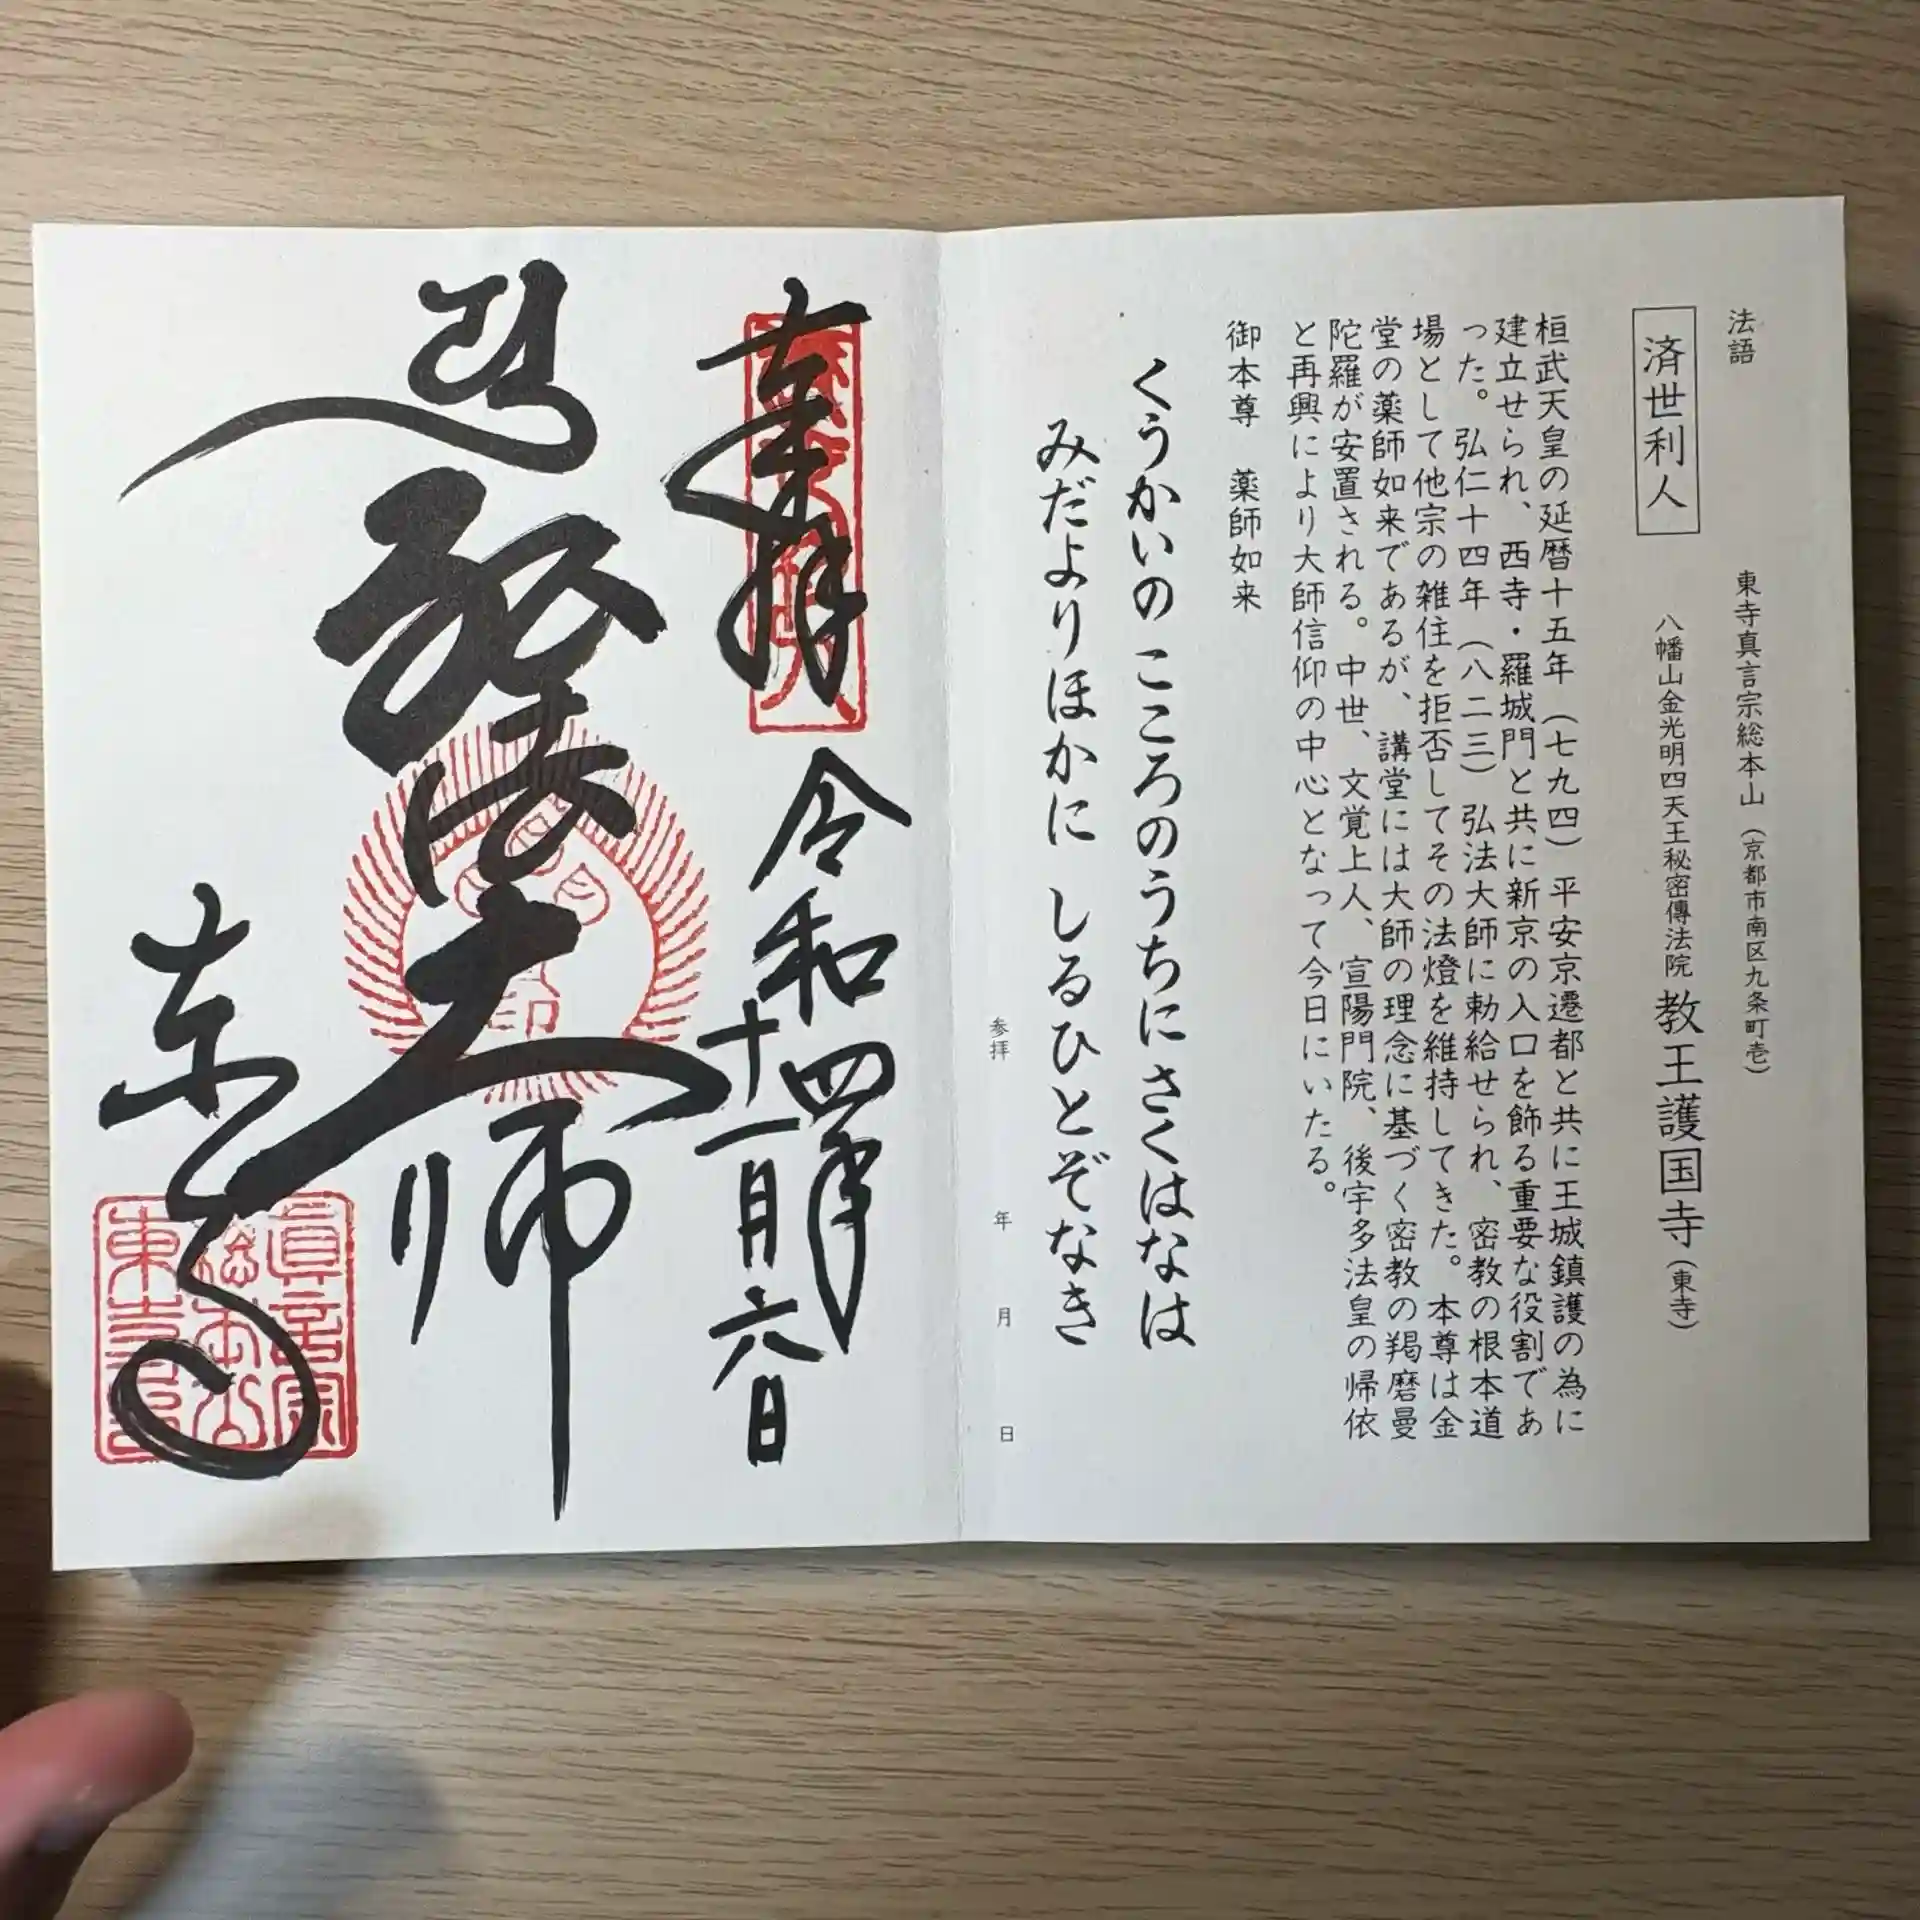 法語
済世利人
東寺真言宗総本山(京都市南区九条町壱)
八幡山金光明四天王秘密傳法院 教王護国寺(東寺)
桓武天皇の延暦十五年(七九四)平安京遷都と共に王城鎮護の為に
建立せられ、西寺・羅城門と共に新京の入口を飾る重要な役割であ
った。弘仁十四年(八二三)弘法大師に勅給せられ、密教の根本道
場として他宗の雑住を拒否してその法燈を維持してきた。本尊は金
堂の薬師如来であるが、講堂には大師の理念に基づく密教の羯磨曼
陀羅が安置される。中世、文覚上人、宣陽門院、後宇多法皇の帰依
と再興により大師信仰の中心となって今日にいたる。
御本尊 薬師如来
くうかいの こころのうちにさくはなは
みだよりほかに しるひとぞなき
参拝 年 月 日
奉拝 令和四年
十一月六日
弘法大師
東寺
真言宗
総本山
東寺印